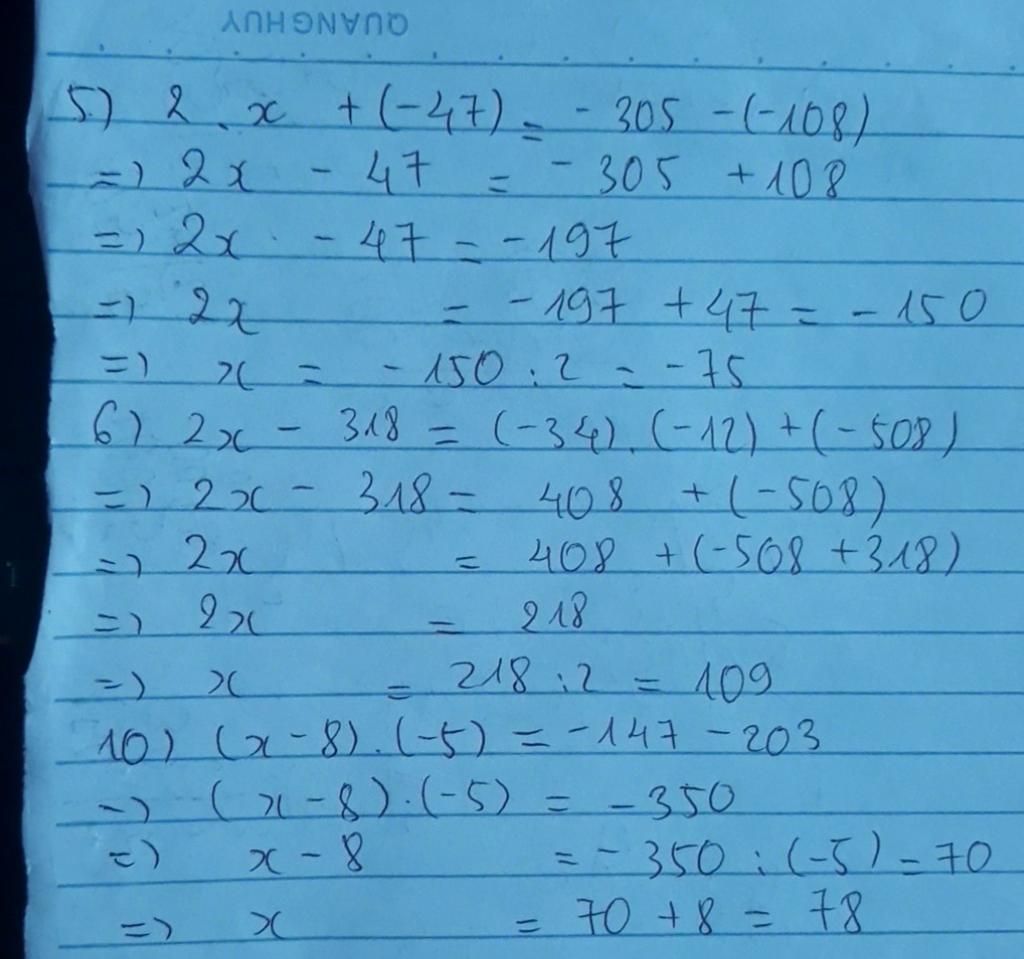 QUANGHUY
5.) 2 . x + (-47) = - 305 - (-108)
=) 2x - 47 = - 305 + 108
=) 2x - 47 = - 197
=) 2x = - 197 + 47 = - 150
=) x = - 150 : 2 = - 75
6) 2x - 318 = (-34) . (-12) + (-508)
=) 2x - 318 = 408 + (-508)
=) 2x = 408 + (-508 + 318)
=) 2x = 218
=) x = 218 : 2 = 109
10) (x - 8) . (-5) = - 147 - 203
-) (x - 8) . (-5) = - 350
=) x - 8 = - 350 : (-5) = 70
=) x = 70 + 8 = 78